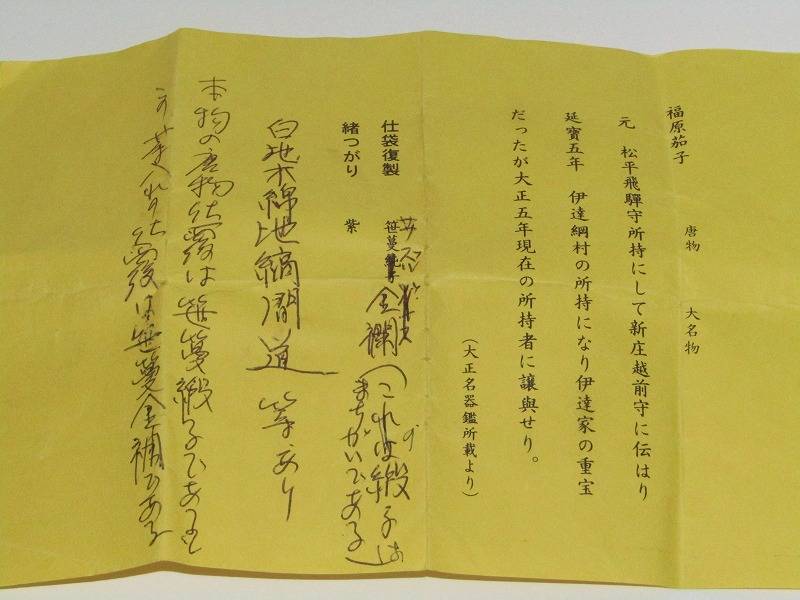 福原茄子
唐物 大名物
元 松平飛驒守所持にして新庄越前守に伝はり
延寶五年 伊達綱村の所持になり伊達家の重宝
だったが大正五年現在の所持者に讓與せり。
(大正名器鑑所載より)
仕袋復製 笹蔓 金襴(これは緞子は
まちがいである)
緒つがり 紫
白地木綿地縞間道 等あり
本物の唐物仕覆は笹蔓緞子であるも
仕覆は笹蔓金襴である